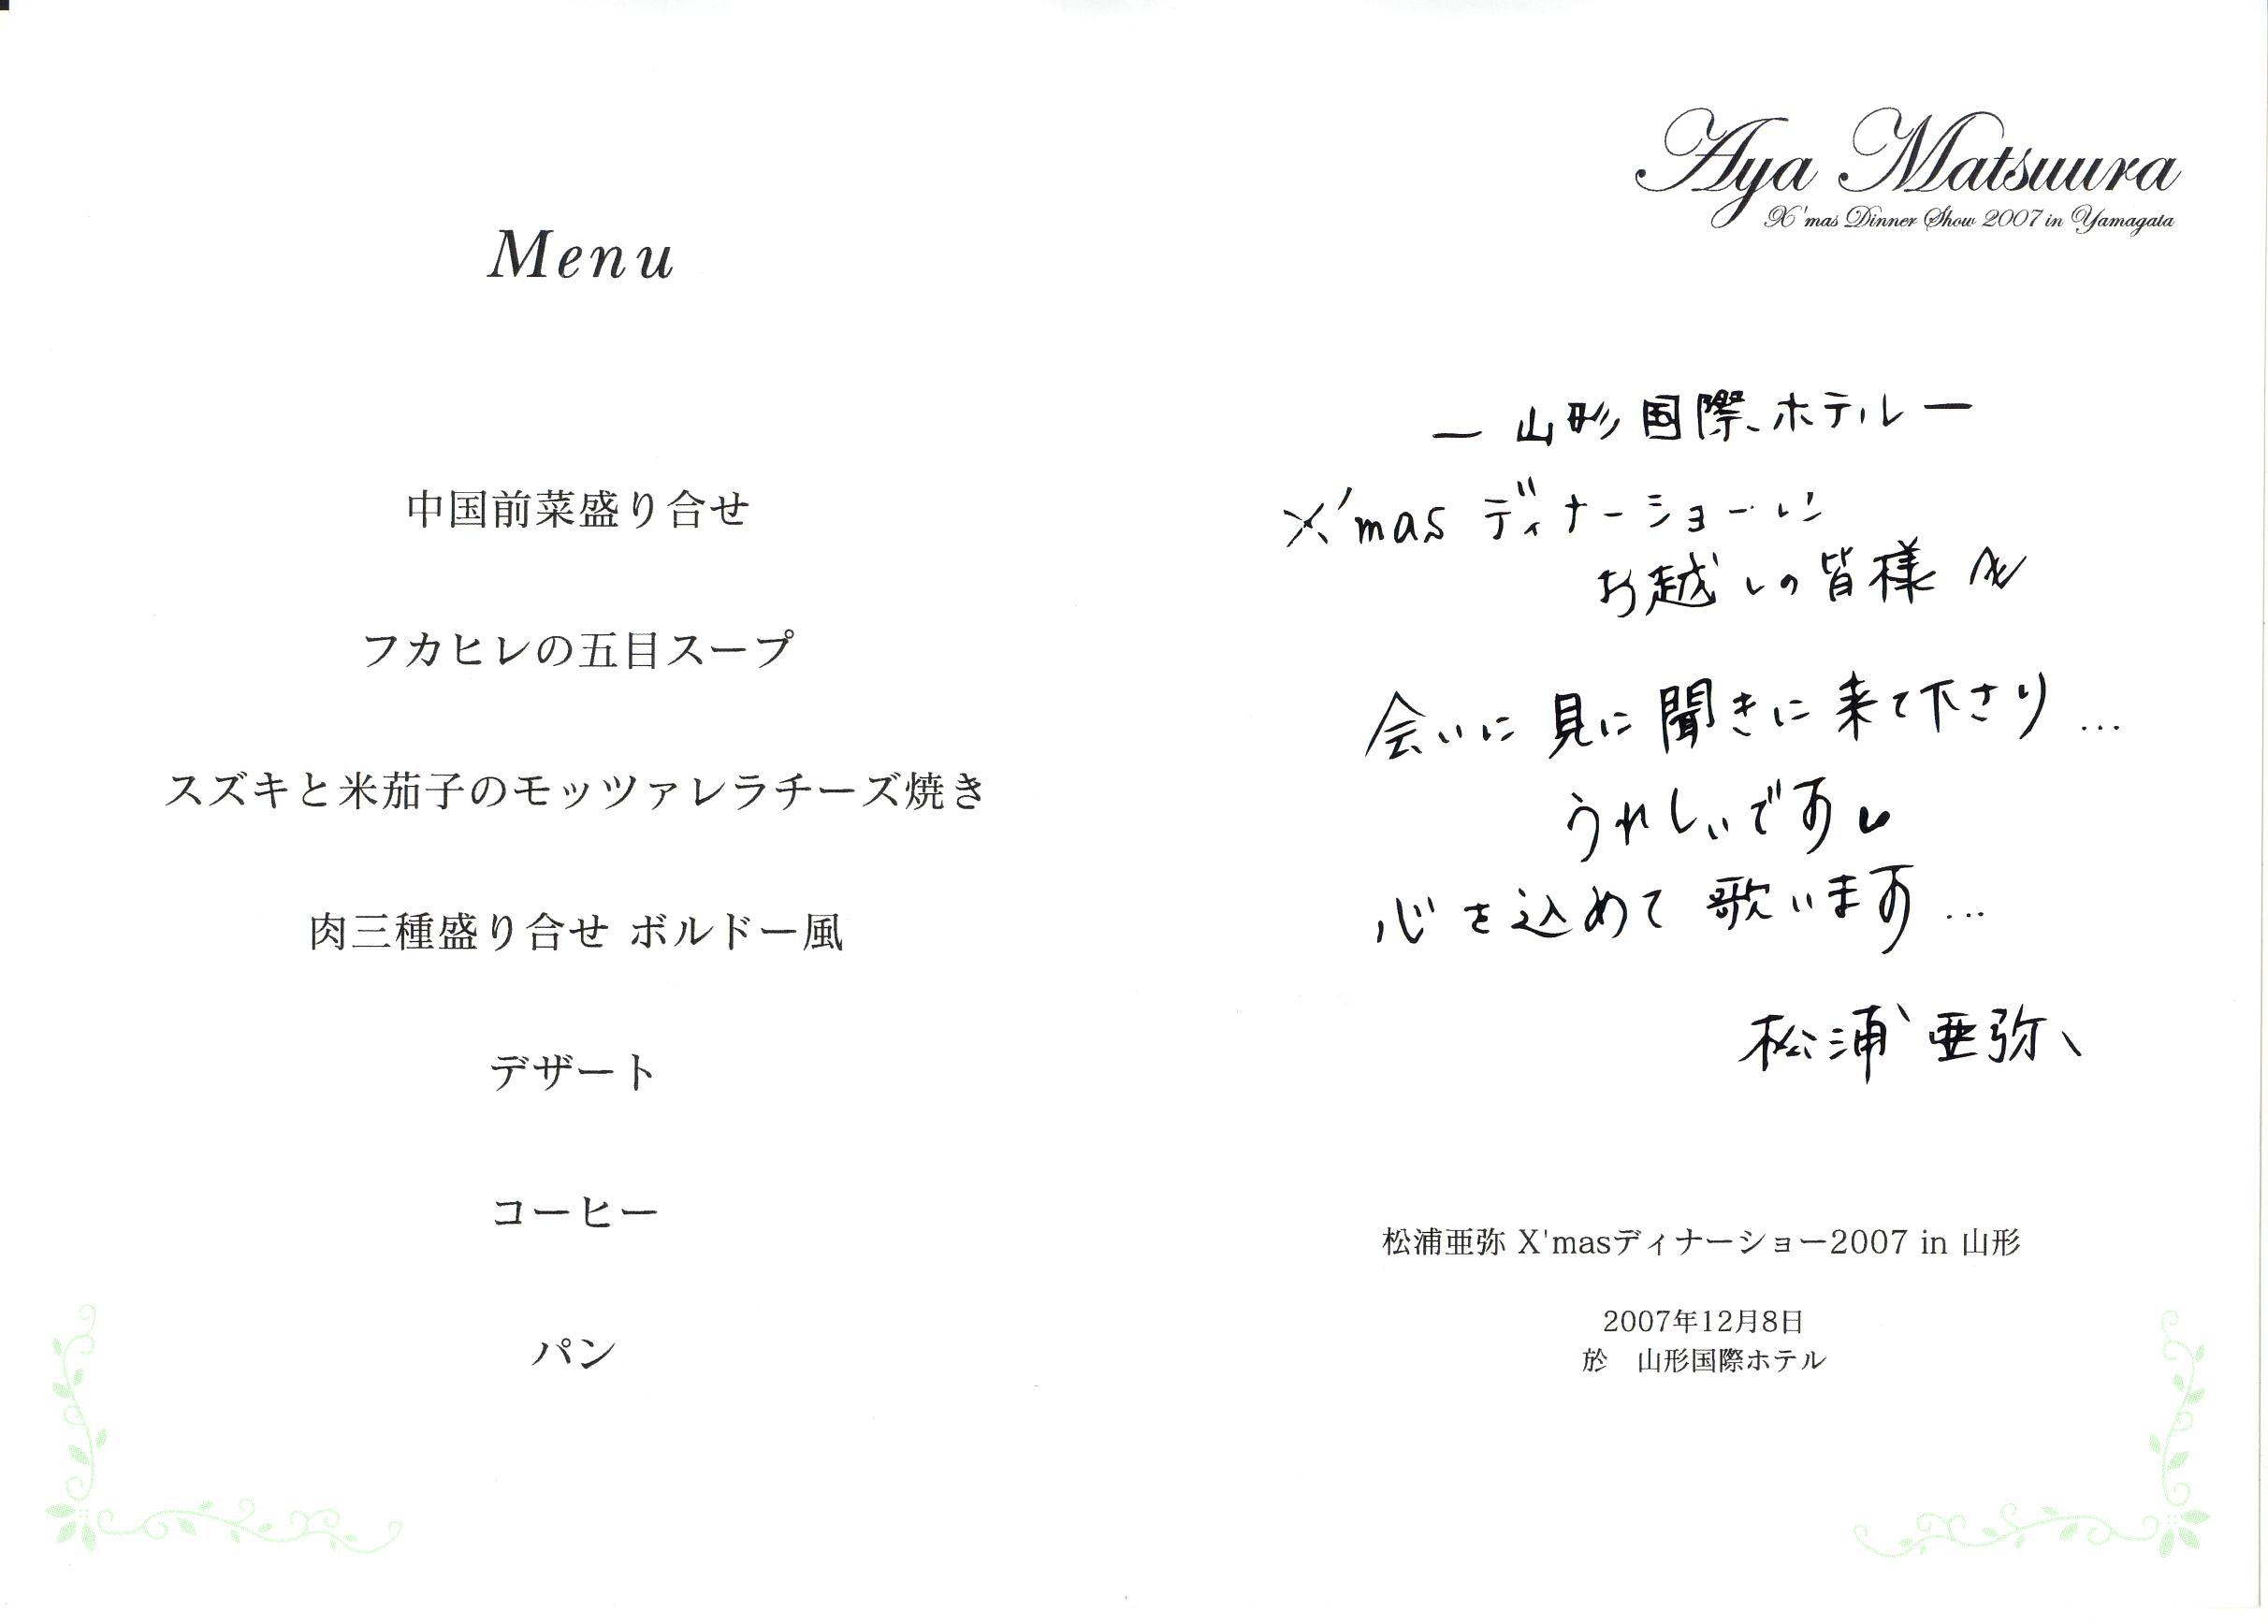 Menu
中国前菜盛り合せ
フカヒレの五目スープ
スズキと米茄子のモッツァレラチーズ焼き
肉三種盛り合せ ボルドー風
デザート
コーヒー
パン
Aya Matsuura
X'mas Dinner Show 2007 in Yamagata
ー山形国際ホテルー
X'mas ディナーショーに
お越しの皆様へ
会いに見に聞きに来て下さり...
うれしいです
心を込めて歌います...
松浦亜弥
松浦亜弥 X'masディナーショー2007 in 山形
2007年12月8日
於　山形国際ホテル